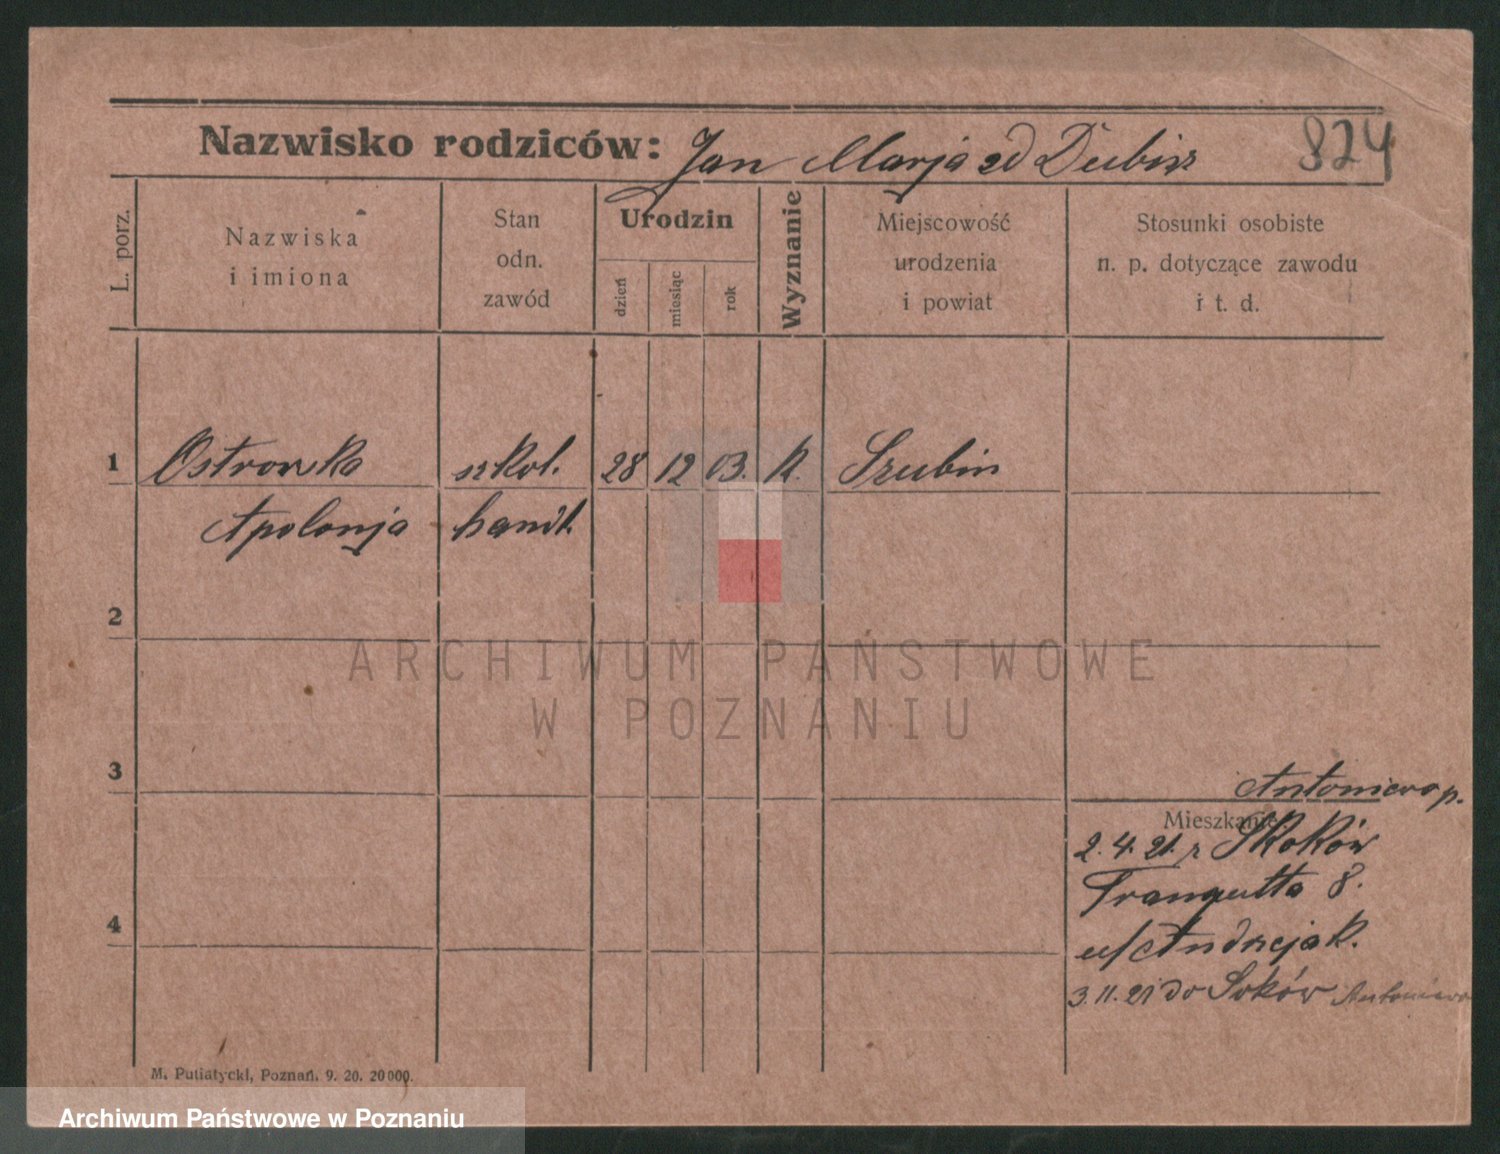 Nazwisko rodziców: Jan Marja zd Dubisz 824
L. porz.
Nazwiska
i imiona
Stan
odn.
zawód
Urodzin
dzień
miesiąc
rok
Wyznanie
Miejscowość
urodzenia
i powiat
Stosunki osobiste
n. p. dotyczące zawodu
i t. d.
1 Ostrowska szkol. 28 12 03. K. Szubin
Apolonja handl.
2
ARCHIWUM PAŃSTWOWE
W POZNANIU
3
Antoniewo p.
Mieszkanie
2. 4. 21. z Skoków
Traugutta 8.
u/Andrzejak.
4
3.11.21 do Skoków Antoniewo
M. Putiatycki, Poznań. 9. 20. 20000.
Archiwum Państwowe w Poznaniu